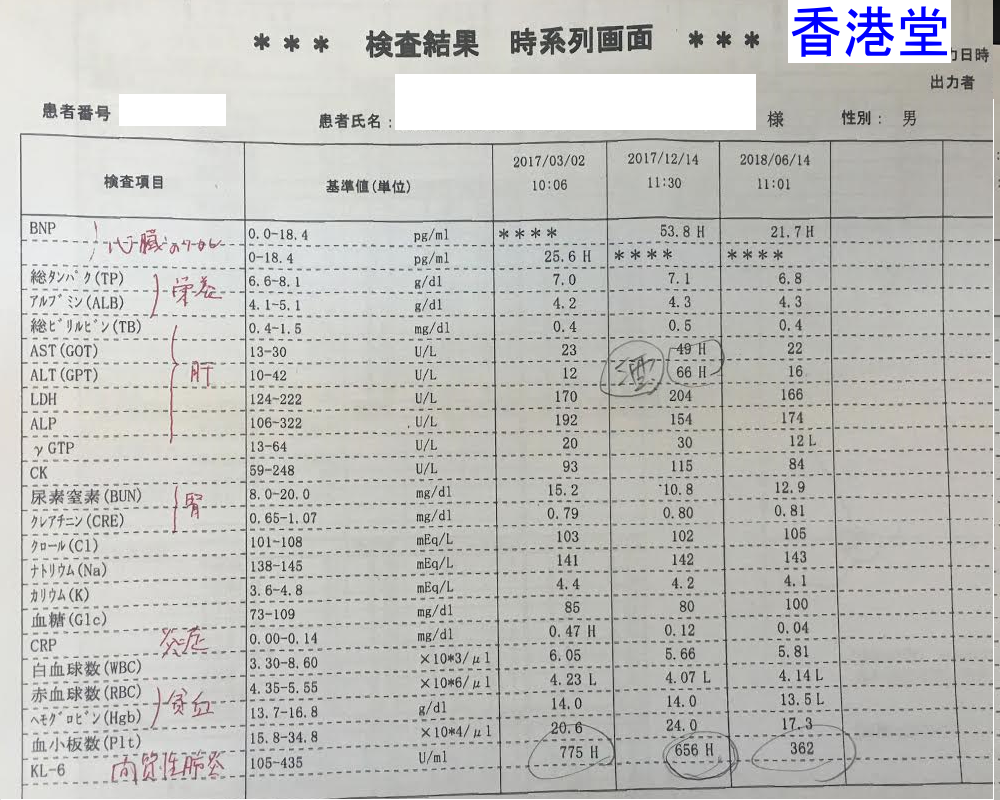 香港堂
*** 検査結果 時系列画面 ***
力日時
出力者
患者番号
患者氏名: 様 性別: 男
検査項目 基準値(単位) 2017/03/02 10:06 2017/12/14 11:30 2018/06/14 11:01
BNP 0.0-18.4 pg/ml **** 53.8 H 21.7 H
心臓
0-18.4 pg/ml 25.6 H **** ****
総タンパク(TP) 6.6-8.1 g/dl 7.0 7.1 6.8
栄養
アルブミン(ALB) 4.1-5.1 g/dl 4.2 4.3 4.3
総ビリルビン(TB) 0.4-1.5 mg/dl 0.4 0.5 0.4
AST(GOT) 13-30 U/L 23 49 H 22
肝
酒
ALT(GPT) 10-42 U/L 12 66 H 16
LDH 124-222 U/L 170 204 166
ALP 106-322 U/L 192 154 174
γGTP 13-64 U/L 20 30 12 L
CK 59-248 U/L 93 115 84
尿素窒素(BUN) 8.0-20.0 mg/dl 15.2 10.8 12.9
腎
クレアチニン(CRE) 0.65-1.07 mg/dl 0.79 0.80 0.81
クロール(Cl) 101-108 mEq/L 103 102 105
ナトリウム(Na) 138-145 mEq/L 141 142 143
カリウム(K) 3.6-4.8 mEq/L 4.4 4.2 4.1
血糖(Glc) 73-109 mg/dl 85 80 100
CRP 炎症 0.00-0.14 mg/dl 0.47 H 0.12 0.04
白血球数(WBC) 3.30-8.60 ×10*3/μl 6.05 5.66 5.81
赤血球数(RBC) 4.35-5.55 ×10*6/μl 4.23 L 4.07 L 4.14 L
貧血
ヘモグロビン(Hgb) 13.7-16.8 g/dl 14.0 14.0 13.5 L
血小板数(Plt) 15.8-34.8 ×10*4/μl 20.6 24.0 17.3
KL-6 間質性肺炎 105-435 U/ml 775 H 656 H 362